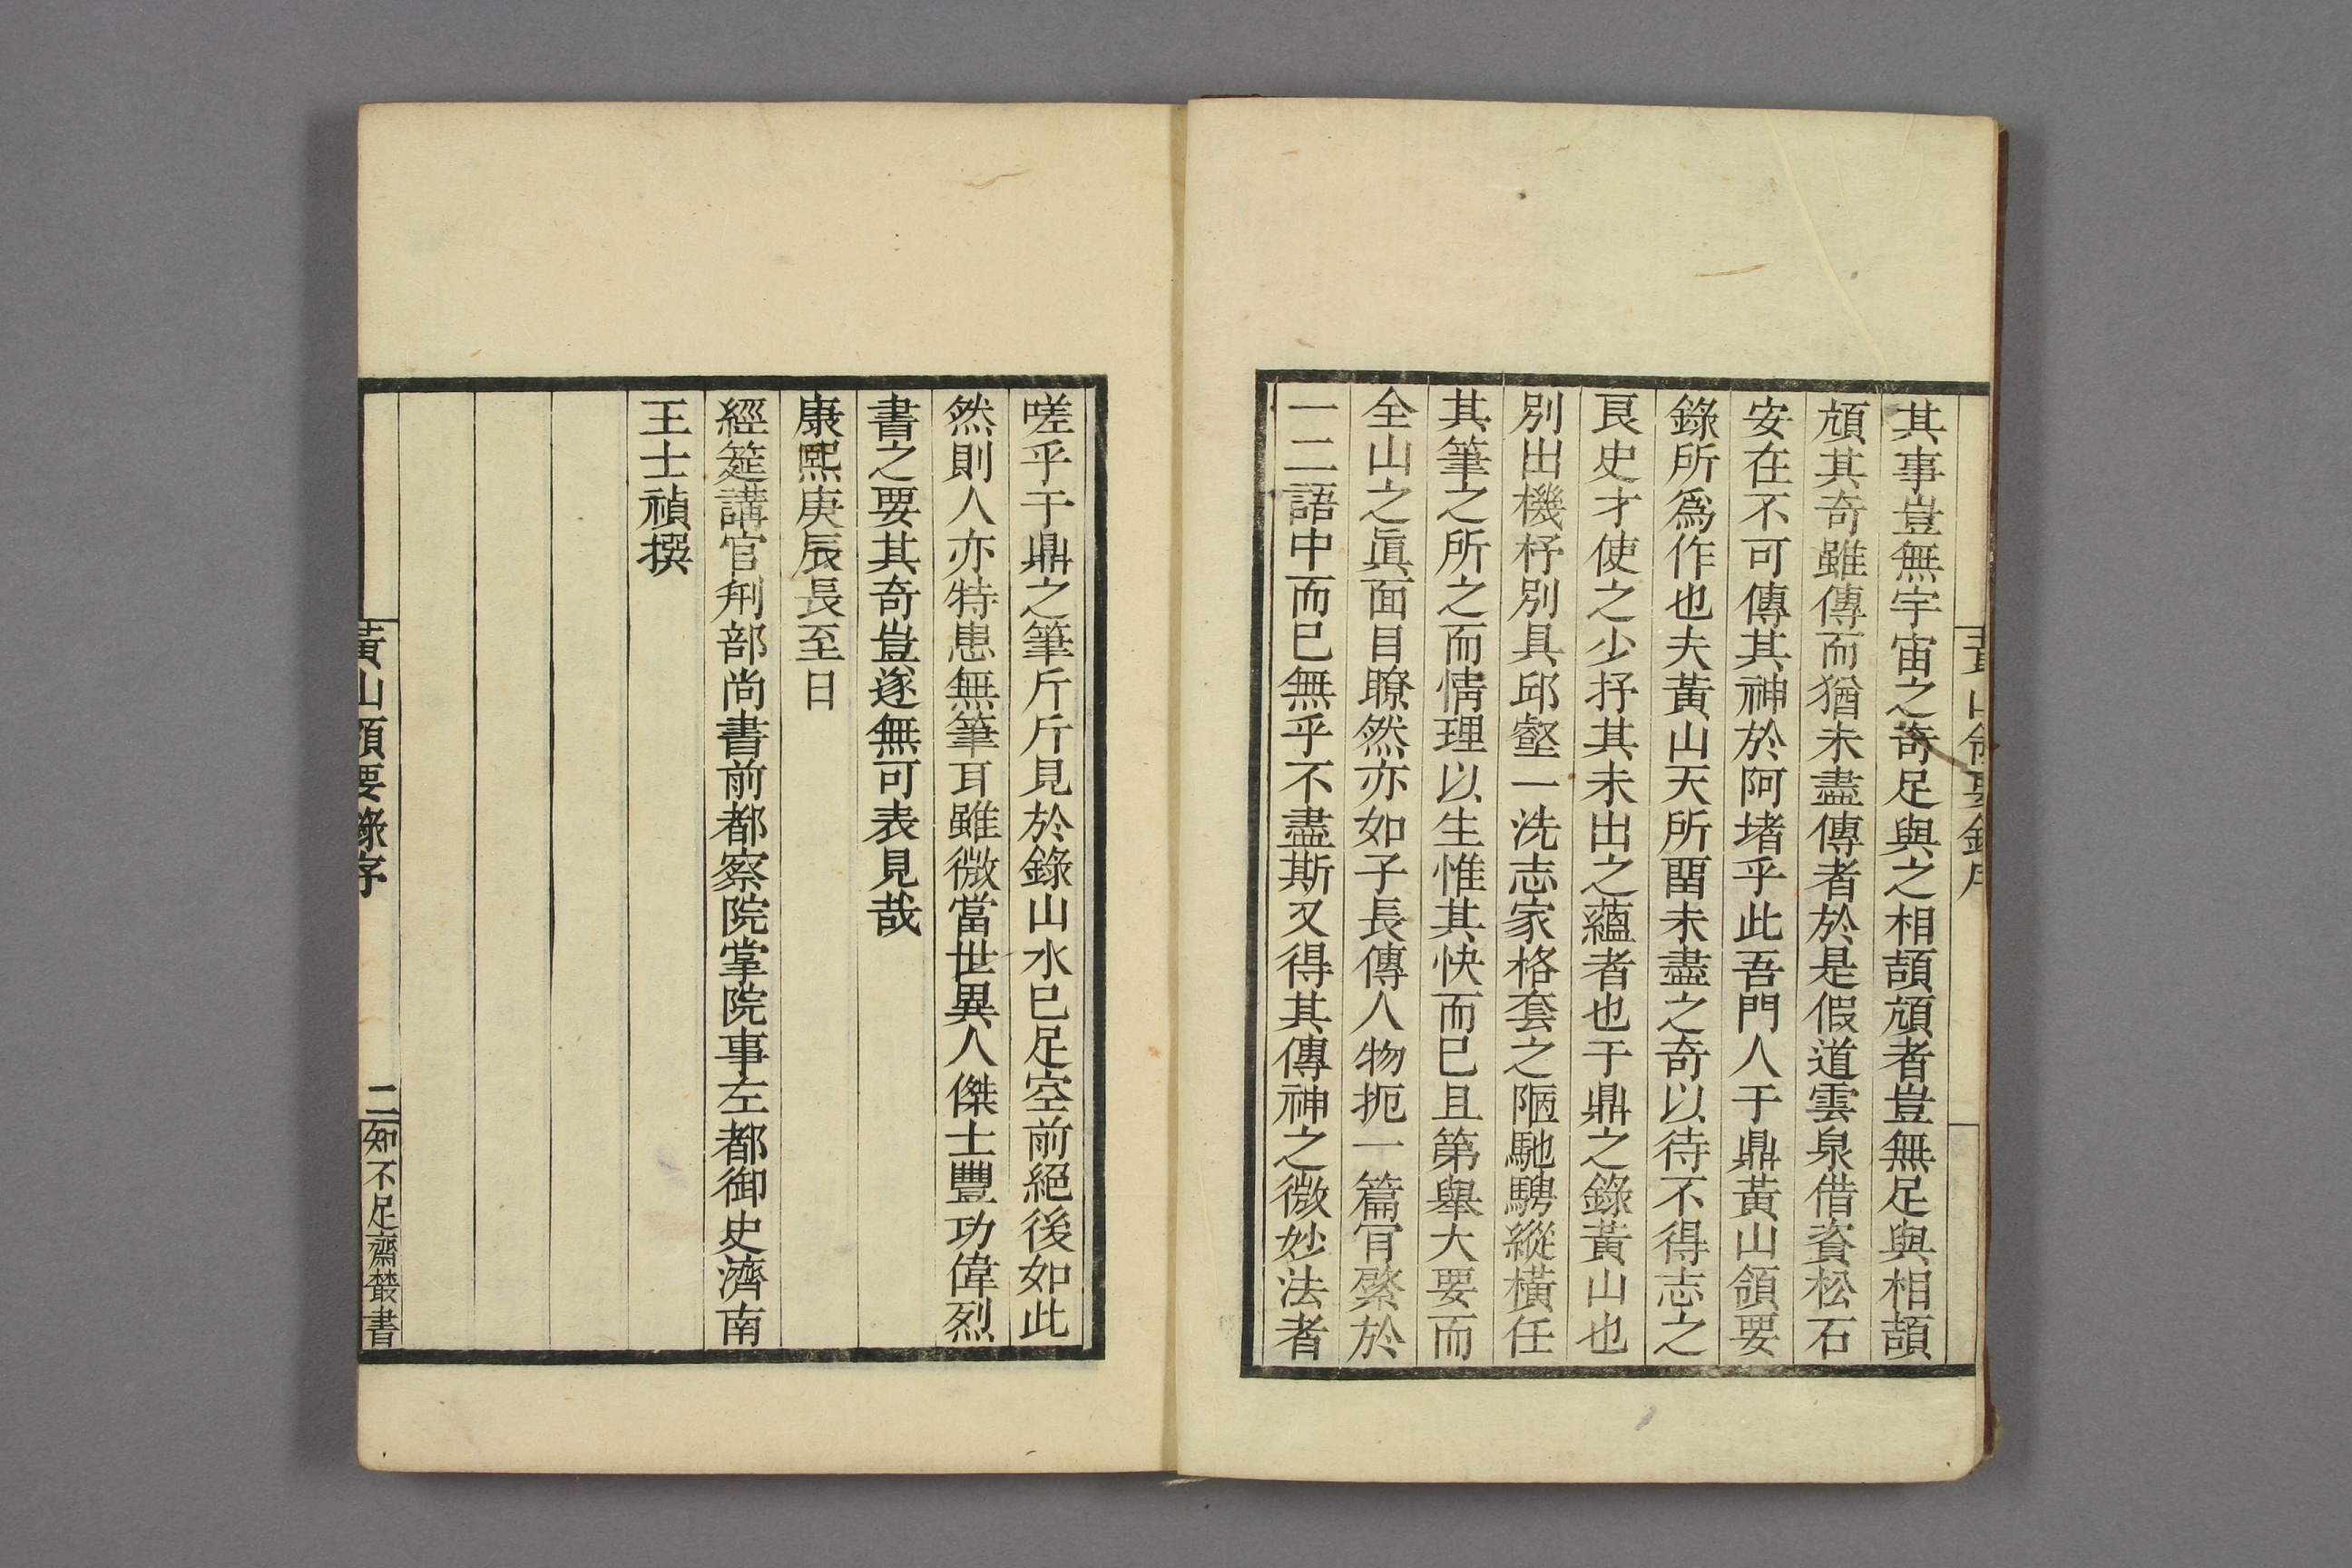 其事豈無宇宙之奇足與之相頡頏者豈無足與相頡
頏其奇雖傳而猶未盡傳者於是假道雲泉借資松石
安在不可傳其神於阿堵乎此吾門人于鼎黃山領要
錄所爲作也夫黃山天所畱未盡之奇以待不得志之
良史才使之少抒其未出之蘊者也于鼎之錄黃山也
別出機杼別具邱壑一洗志家格套之陋馳騁縱橫任
其筆之所之而情理以生惟其快而已且第舉大要而
全山之眞面目瞭然亦如子長傳人物扼一篇肎綮於
一二語中而已無乎不盡斯又得其傳神之微妙法者
嗟乎于鼎之筆斤斤見於錄山水已足空前絕後如此
然則人亦特患無筆耳雖微當世異人傑士豐功偉烈
書之要其奇豈遂無可表見哉
康熙庚辰長至日
經筵講官刑部尚書前都察院掌院事左都御史濟南
王士禎撰
黃山領要錄序
二
知不足齋叢書